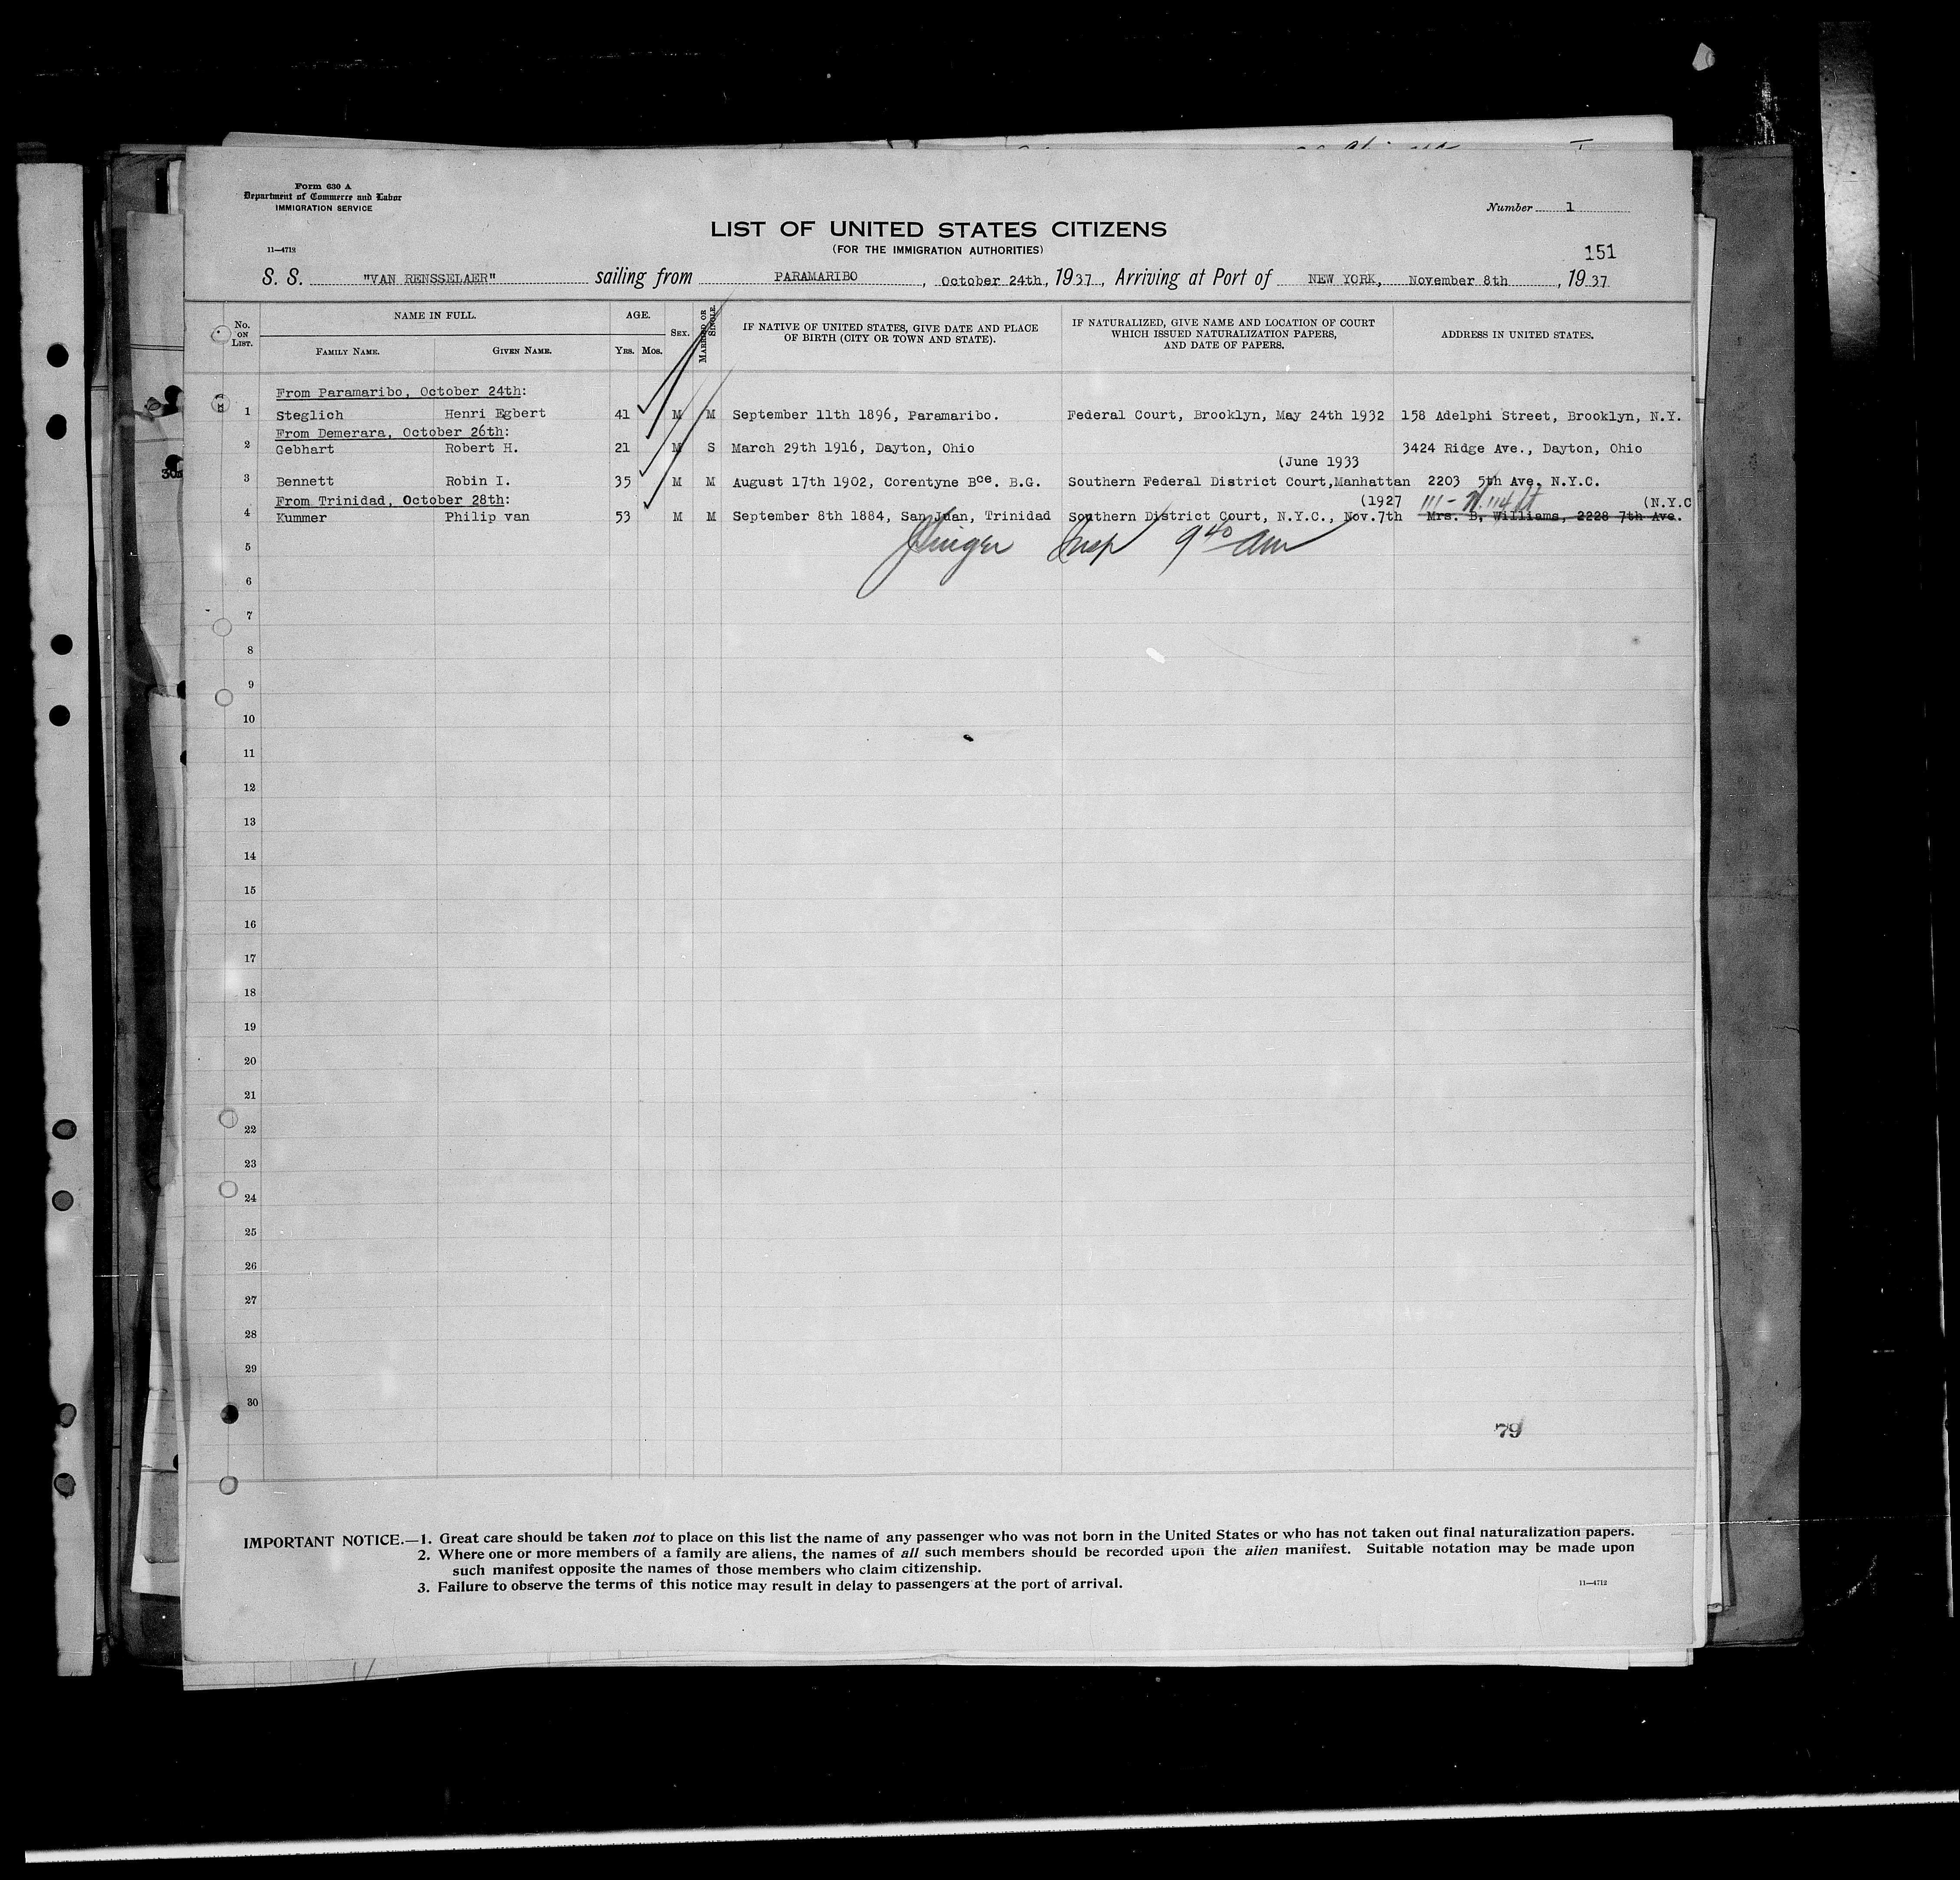 Form 630 A
Department of Commerce and Labor
IMMIGRATION SERVICE
Number 1
LIST OF UNITED STATES CITIZENS
(FOR THE IMMIGRATION AUTHORITIES)
11—4712
151
S. S. "VAN RENSSELAER" sailing from PARAMARIBO, October 24th, 1937, Arriving at Port of NEW YORK, November 8th, 1937
No. ON LIST. NAME IN FULL. AGE. SEX. MARRIED OR SINGLE. IF NATIVE OF UNITED STATES, GIVE DATE AND PLACE OF BIRTH (CITY OR TOWN AND STATE). IF NATURALIZED, GIVE NAME AND LOCATION OF COURT WHICH ISSUED NATURALIZATION PAPERS, AND DATE OF PAPERS. ADDRESS IN UNITED STATES.
FAMILY NAME. GIVEN NAME. YRS. MOS.
From Paramaribo, October 24th:
1 Steglich Henri Egbert 41 M M September 11th 1896, Paramaribo. Federal Court, Brooklyn, May 24th 1932 158 Adelphi Street, Brooklyn, N.Y.
From Demerara, October 26th:
2 Gebhart Robert H. 21 M S March 29th 1916, Dayton, Ohio 3424 Ridge Ave., Dayton, Ohio
(June 1933
3 Bennett Robin I. 35 M M August 17th 1902, Corentyne Bce. B.G. Southern Federal District Court,Manhattan 2203 5th Ave. N.Y.C.
From Trinidad, October 28th: (1927 111 - W. 114 St (N.Y.C
4 Kummer Philip van 53 M M September 8th 1884, San Juan, Trinidad Southern District Court, N.Y.C., Nov.7th Mrs. B. Williams, 2228 7th Ave.
Insp 9 40 am
5
6
7
8
9
10
11
12
13
14
15
16
17
18
19
20
21
22
23
24
25
26
27
28
29
30
79
IMPORTANT NOTICE.—1. Great care should be taken not to place on this list the name of any passenger who was not born in the United States or who has not taken out final naturalization papers.
2. Where one or more members of a family are aliens, the names of all such members should be recorded upon the alien manifest. Suitable notation may be made upon
such manifest opposite the names of those members who claim citizenship.
3. Failure to observe the terms of this notice may result in delay to passengers at the port of arrival.
11—4712